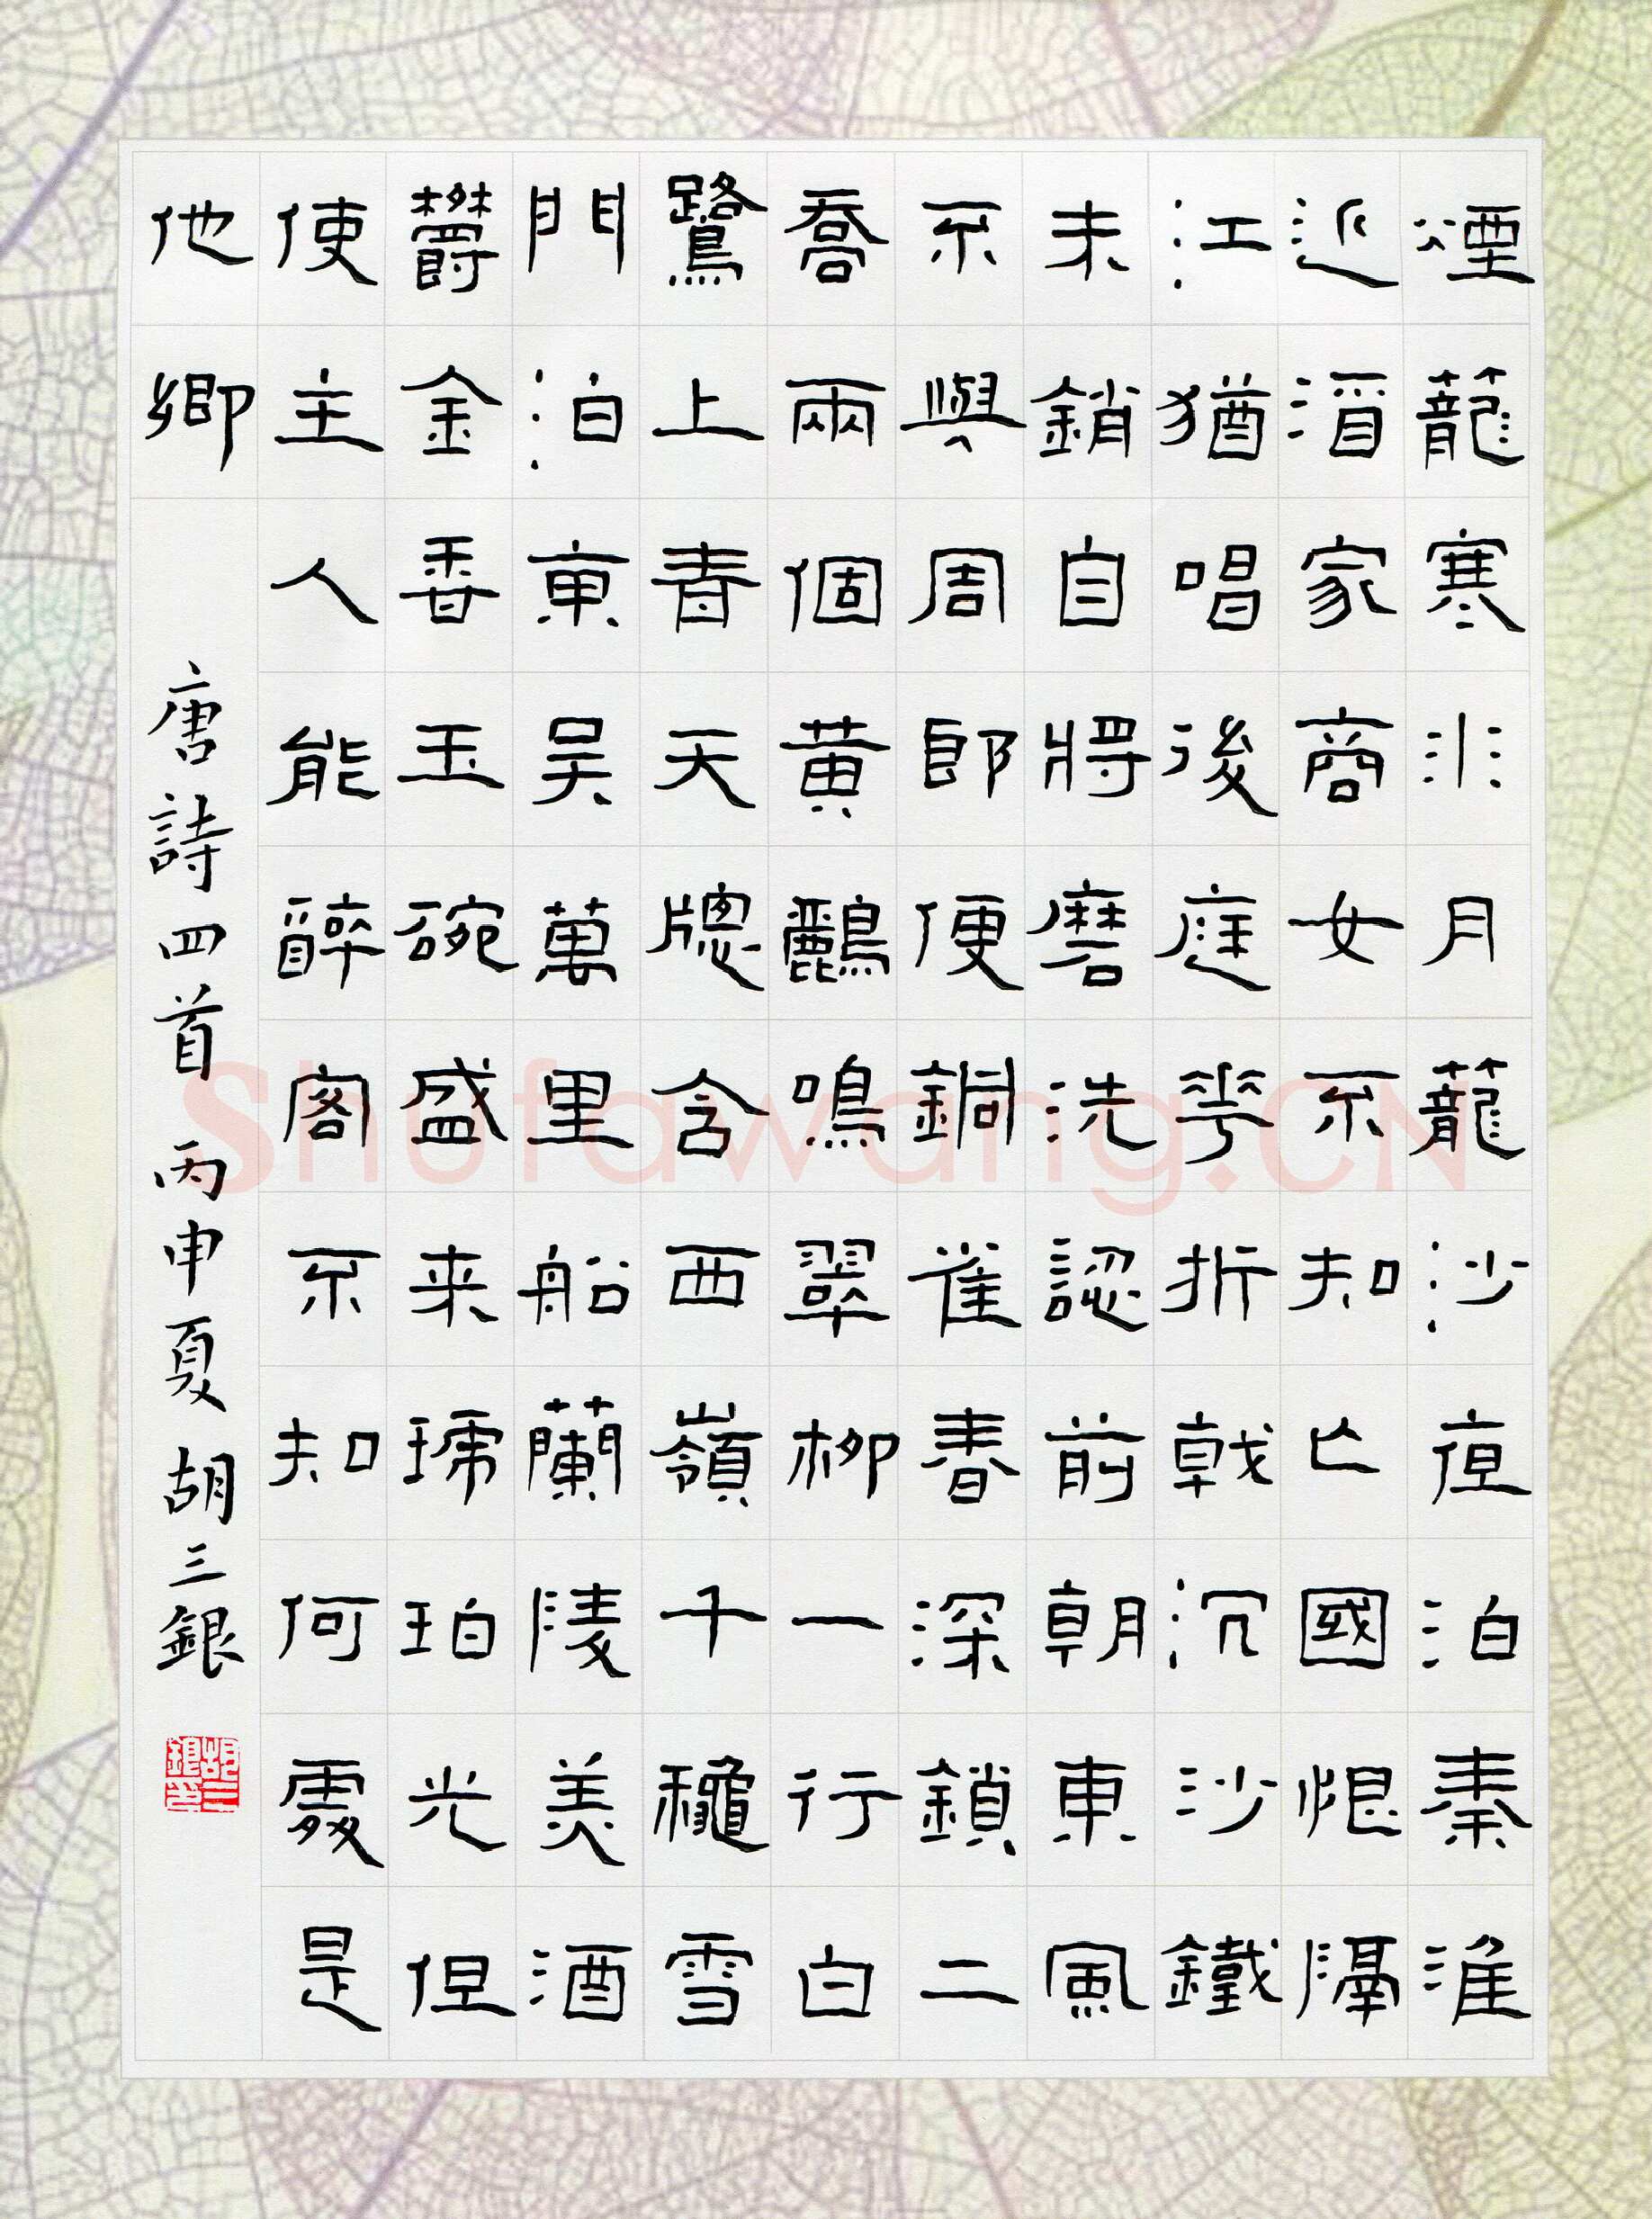 煙籠寒水月籠沙夜泊秦淮
近酒家商女不知亡國恨隔
江猶唱後庭花折戟沉沙鐵
未銷自將磨洗認前朝東風
不與周郎便銅雀春深鎖二
喬兩個黃鸝鳴翠柳一行白
鷺上青天牕含西嶺千穐雪
門泊東吳萬里船蘭陵美酒
鬱金香玉碗盛来琥珀光但
使主人能醉客不知何處是
他鄉
唐詩四首 丙申夏 胡三銀
胡三銀印
Shufawang.CN